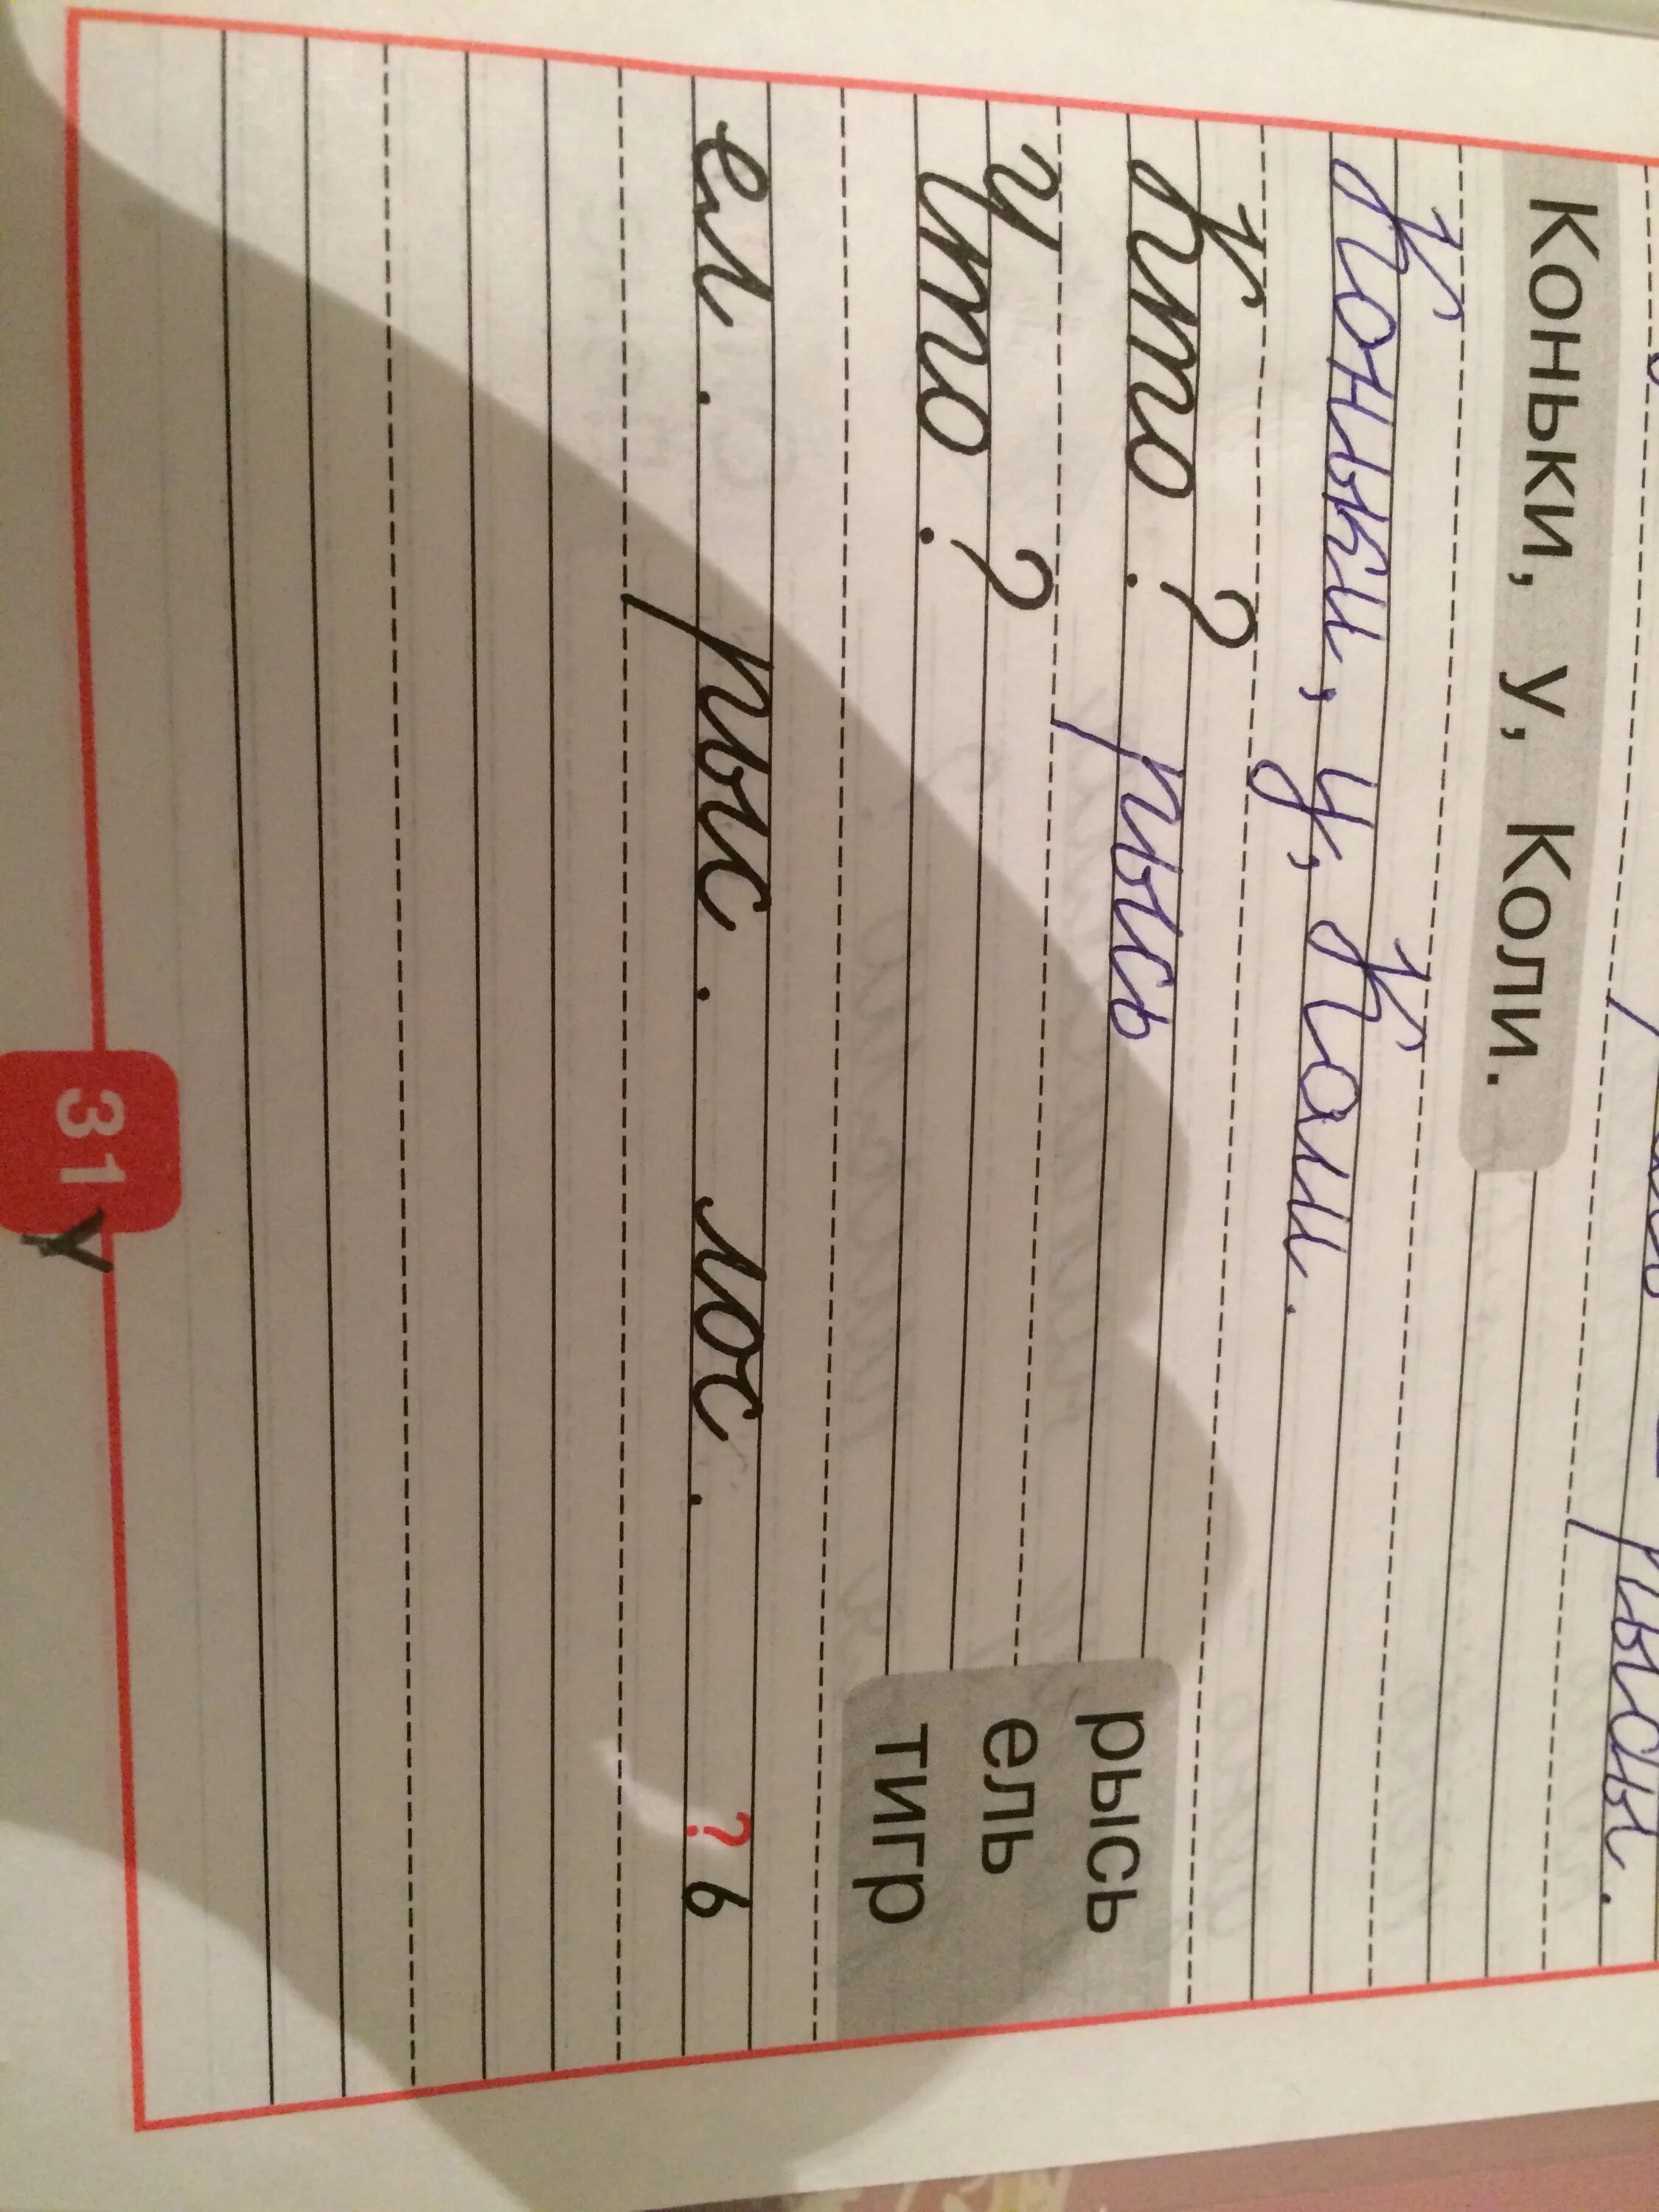 рысы.
Коньки, у, Коли.
Коньки, у, Коли.
Кто? рысь
Что?
рысь
ель
тигр
ел. рыс. лос. ? ь
31 У